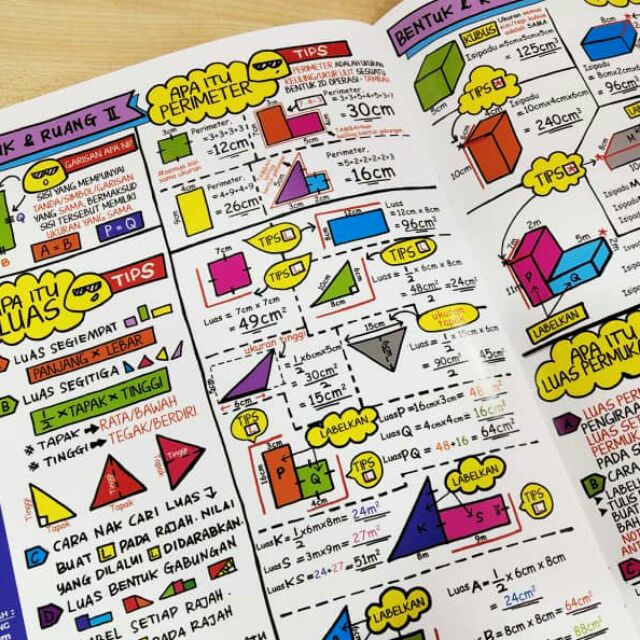 NK & RUANG II
GARISAN APA NI?
SISI YANG MEMPUNYAI
TANDA/SIMBOL/GARISAN
YANG SAMA, BERMAKSUD
SISI TERSEBUT MEMILIKI
UKURAN YANG SAMA
Q
B
A = B
P = Q
APA ITU
LUAS
TIPS
LUAS SEGIEMPAT
PANJANG × LEBAR
B
LUAS SEGITIGA
1/2 × TAPAK × TINGGI
* TAPAK → RATA/BAWAH
* TINGGI → TEGAK/BERDIRI
Tinggi
Tapak
Tinggi
Tapak
Tinggi
Tapak
C
CARA NAK CARI LUAS
BUAT L PADA RAJAH. NILAI
YANG DILALUI L DIDARABKAN.
D
LUAS BENTUK GABUNGAN
LABEL SETIAP RAJAH.
PADA RAJAH
APA ITU
PERIMETER
TIPS
PERIMETER ADALAH UKURAN
KELILING/UKUR LILIT SESUATU
BENTUK 2D OPERASI : TAMBAH
3cm
3cm
Perimeter.
=3+3+3+3
=12cm
*semua sisi
sama ukuran
7-4=3
Perimeter.
=3+3+5+4+5+3+7
=30cm
5cm
4cm
9cm
Perimeter.
=4+9+4+9
=26cm
3cm
2cm
Perimeter.
=5+2+2+2+2+3
=16cm
7cm
TIPS
TIPS
Luas = 7cm x 7cm
=49cm²
12cm
8cm
Luas
=12cm x 8cm
=96cm²
TIPS
10cm
8cm
6cm
Luas = 1/2 x 6cm x 8cm
= 48cm²/2 =24cm²
ukuran tinggi
6cm
Luas
= 1/2 x 6cm x 5cm
= 30cm²/2
= 15cm²
ukuran
tapak
15cm
6cm
Luas
= 1/2 x 15cm x 6cm
= 90cm²/2
45cm²
TIPS
3cm
16cm
P
Q
4cm
LABELKAN
TIPS
Luas P = 16cm x 3cm = 48cm²
Luas Q = 4cm x 4cm = 16cm²
Luas PQ = 48+16 = 64cm²
Luas K = 1/2 x 6m x 8m = 24m²
Luas S = 3m x 9m = 27m²
Luas KS = 24+27 = 51m²
K
S
8m
9m
LABELKAN
TIPS
LABELKAN
Luas A = 1/2 x 6cm x 8cm
= 24cm²
B = 8cm x 8cm = 64cm²
88cm²
BENTUK & R
KUBUS
Ukuran semua
sisi/tepi kubus
adalah SAMA
5cm
Isipadu = 5cm x 5cm x 5cm
= 125cm³
TIPS
4cm
10cm
Isipadu
=10cm x 4cm x 6cm
= 240cm³
8cm
Isipadu
= 8cm x 2cm
96cm
TIPS
Isipadu
Isipadu
Isipadu
2m
P
Q
5m
2m
11m
LABELKAN
APA ITU
LUAS PERMUKA
A
LUAS PER
PENGIRA
LUAS SE
PERMU
PADA S
B
CARA
LABEL
TU
BUAT
BA
NOT
AN
C